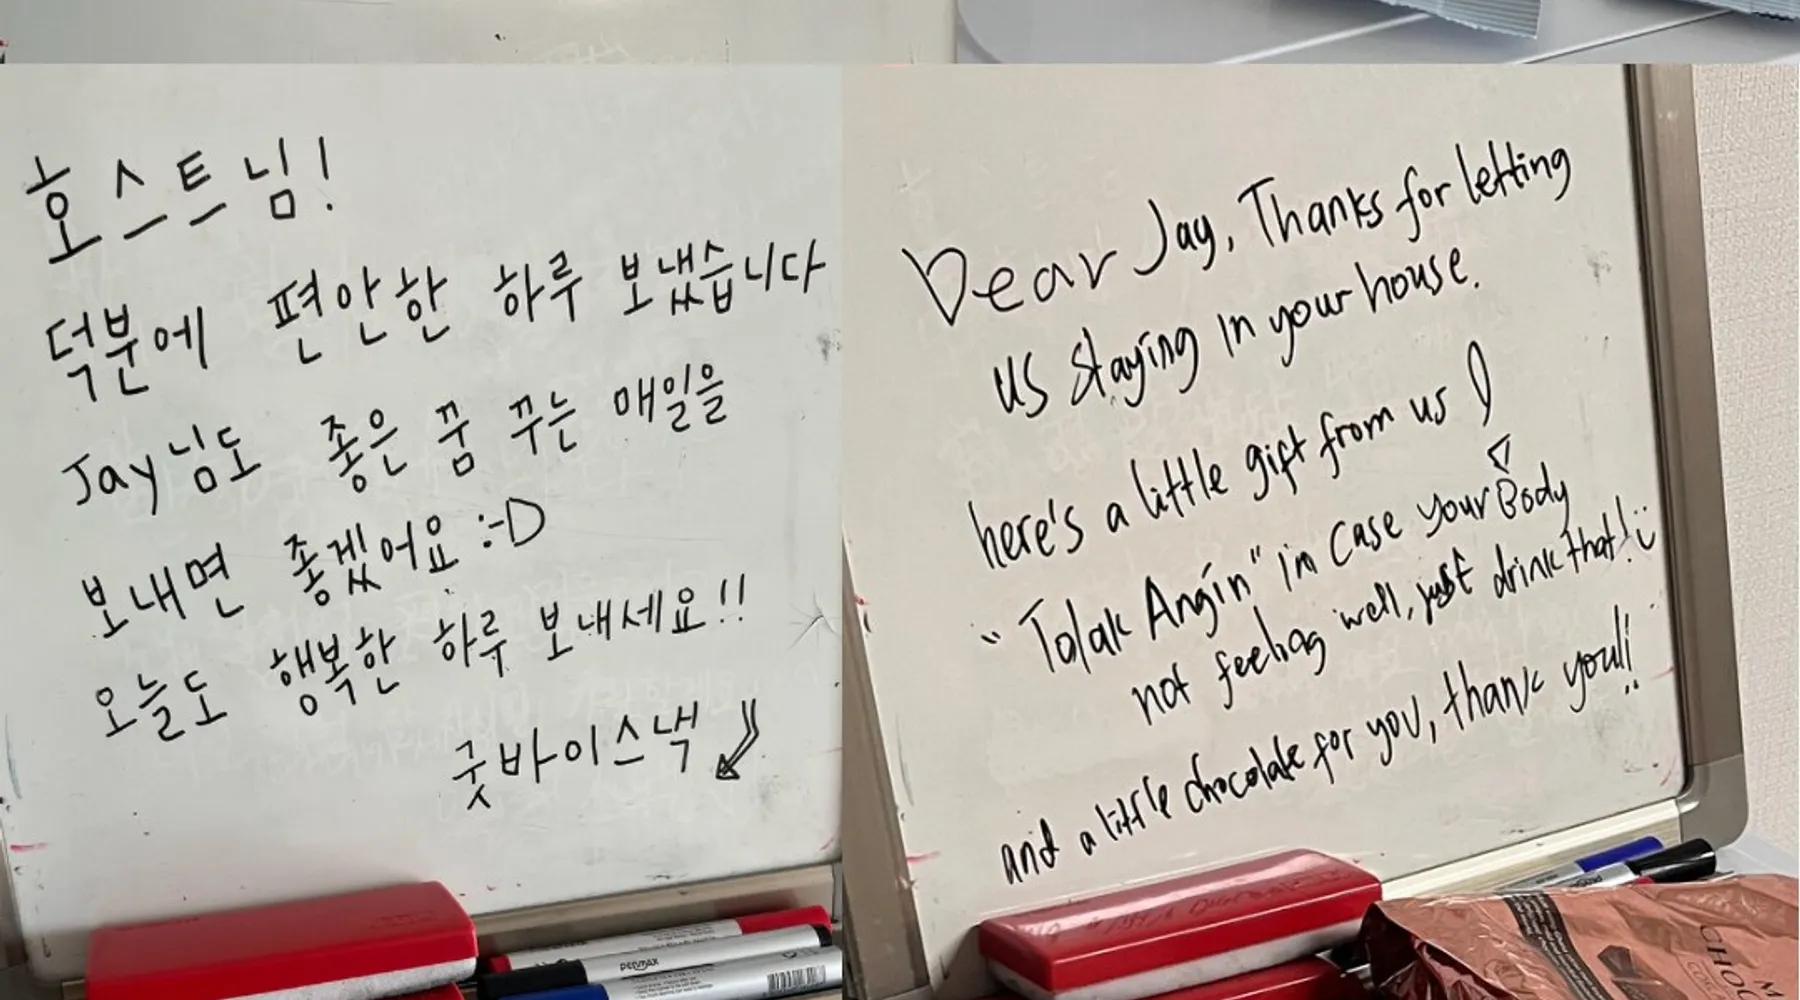 호스트님!
덕분에 편안한 하루 보냈습니다
Jay님도 좋은 꿈 꾸는 매일을
보내면 좋겠어요 :-D
오늘도 행복한 하루 보내세요!!
굿바이스낵
Dear Jay, Thanks for letting
us staying in your house.
here's a little gift from us!
"Tolak Angin" in case your Body
not feeling well, just drink that!
and a little chocolate for you, thank you!!
PENMAX
CHOC